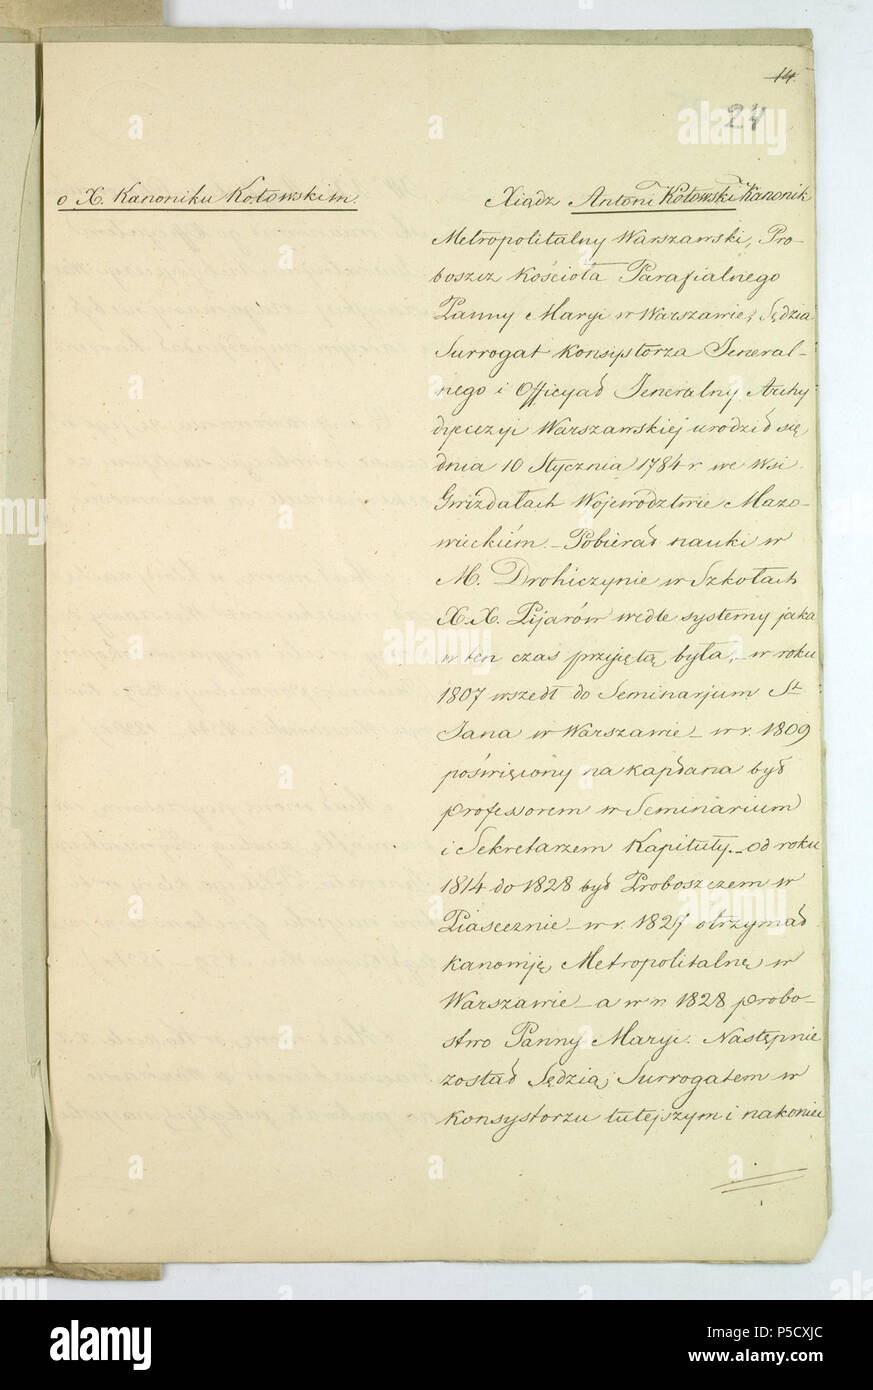 14.
24
o X. Kanoniku Kotowskim.
Xiądz Antoni Kotowski Kanonik
Metropolitalny Warszawski, Pro-
boszcz Kościoła Parafialnego
Panny Maryi w Warszawie, Sędzia
Surrogat Konsystorza Jeneral-
nego i Officyał Jeneralny Archy-
dyecezyi Warszawskiej urodził się
dnia 10 Stycznia 1784 r. we Wsi
Gwizdałach Województwie Mazo-
wieckiém. - Pobierał nauki w
M. Drohiczynie w Szkołach
X.X. Pijarów wedle systemy jaka
w ten czas przyjętą była, - w roku
1807 wszedł do Seminarjum St
Jana w Warszawie - w r. 1809
poświęcony na kapłana był
professorem w Seminarium
i Sekretarzem Kapituły. - od roku
1814 do 1828 był Proboszczem w
Piasecznie - w r. 1827 otrzymał
kanoniję Metropolitalną w
Warszawie - a w r. 1828 probo-
stwo Panny Maryi. Następnie
został Sędzią, Surrogatem w
konsystorzu tutejszym i nakoniec
alamy
alamy
alamy
alamy
alamy
alamy stock photo
Image ID: P5CXJC
www.alamy.com